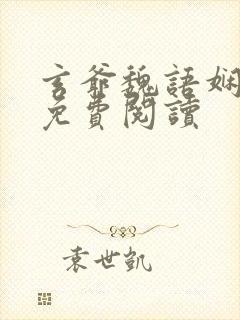 玄爺魏語嫻
免費閱讀
袁世凱